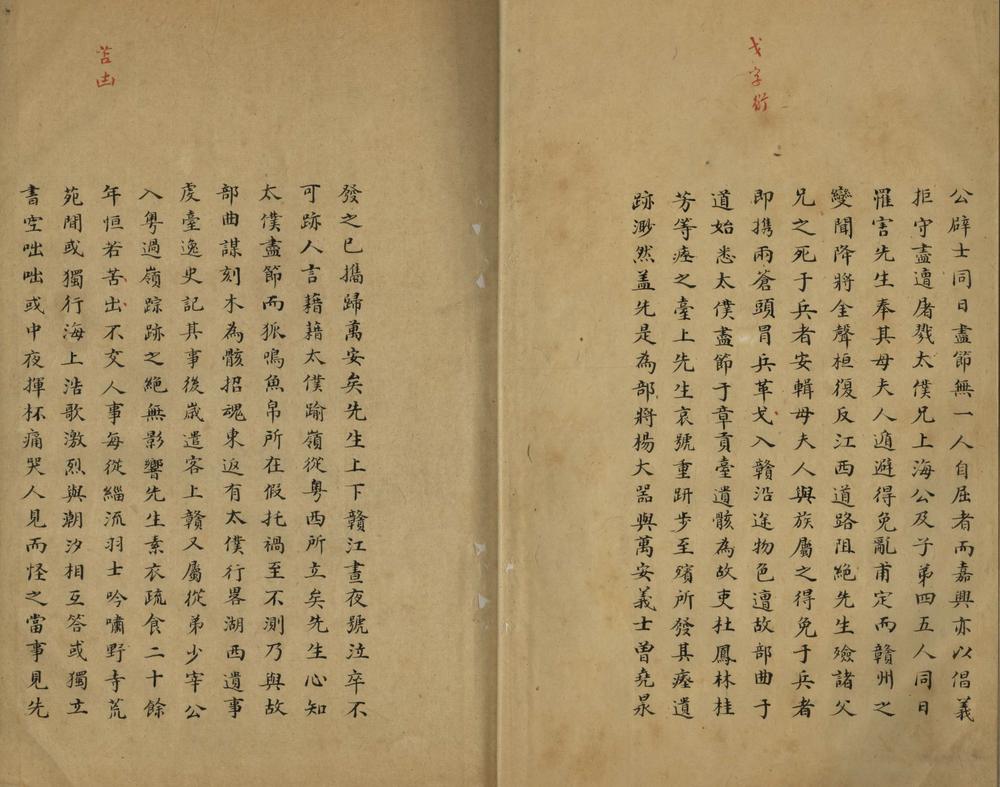 戈字衍
公辟士同日盡節無一人自屈者而嘉興亦以倡義
拒守盡遭屠戮太僕兄上海公及子弟四五人同日
罹害先生奉其母夫人遁避得免亂甫定而贛州之
變聞降將金聲桓復反江西道路阻絕先生殮諸父
兄之死于兵者安輯母夫人與族屬之得免于兵者
即携兩蒼頭冒兵革戈入贛沿途物色遭故部曲于
道始悉太僕盡節于章貢臺遺骸為故吏杜鳳林桂
芳等瘞之臺上先生哀號重趼步至殯所發其瘞遺
跡渺然盖先是為部將楊大噐與萬安義士曾堯泉
苦凷
發之已攜歸萬安矣先生上下贛江晝夜號泣卒不
可跡人言藉藉太僕踰嶺從粤西所立矣先生心知
太僕盡節而狐鳴魚帛所在假托禍至不測乃與故
部曲謀刻木為骸招魂東返有太僕行畧湖西遺事
虔臺逸史記其事後歲遣客上贛又屬從弟少宰公
入粤過嶺踪跡之絕無影響先生素衣疏食二十餘
年恒若苦出不交人事每從緇流羽士吟嘯野寺荒
苑間或獨行海上浩歌激烈與潮汐相互答或獨立
書空咄咄或中夜揮杯痛哭人見而怪之當事見先